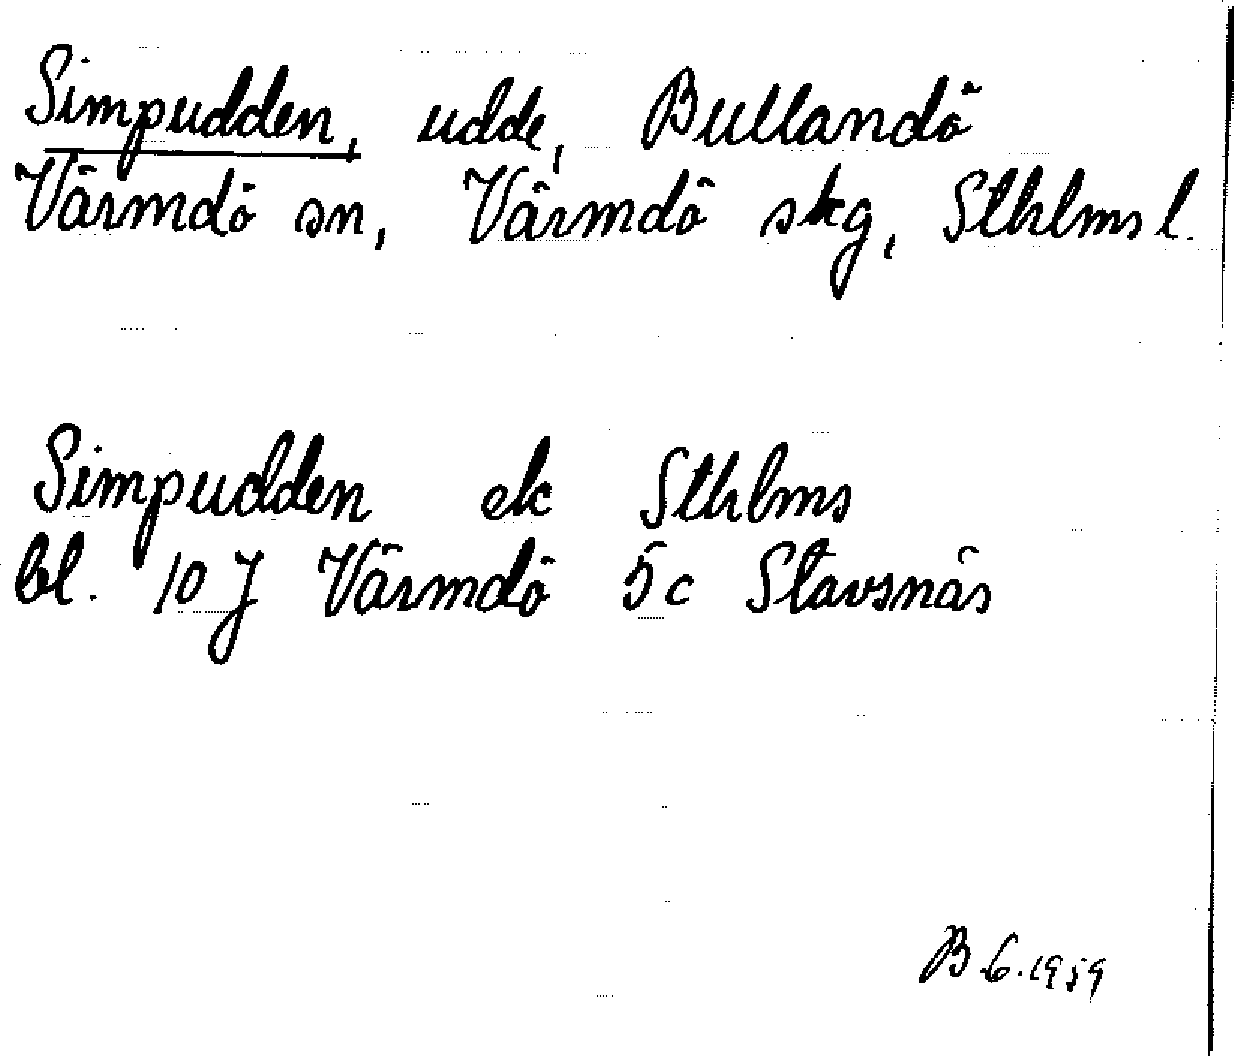 Simpudden, udde, Bullandö
Värmdö sn, Värmdö skg, Sthlms l.
Simpudden ek Sthlms
bl. 10 J Värmdö 5c Stavsnäs
B 6.1959